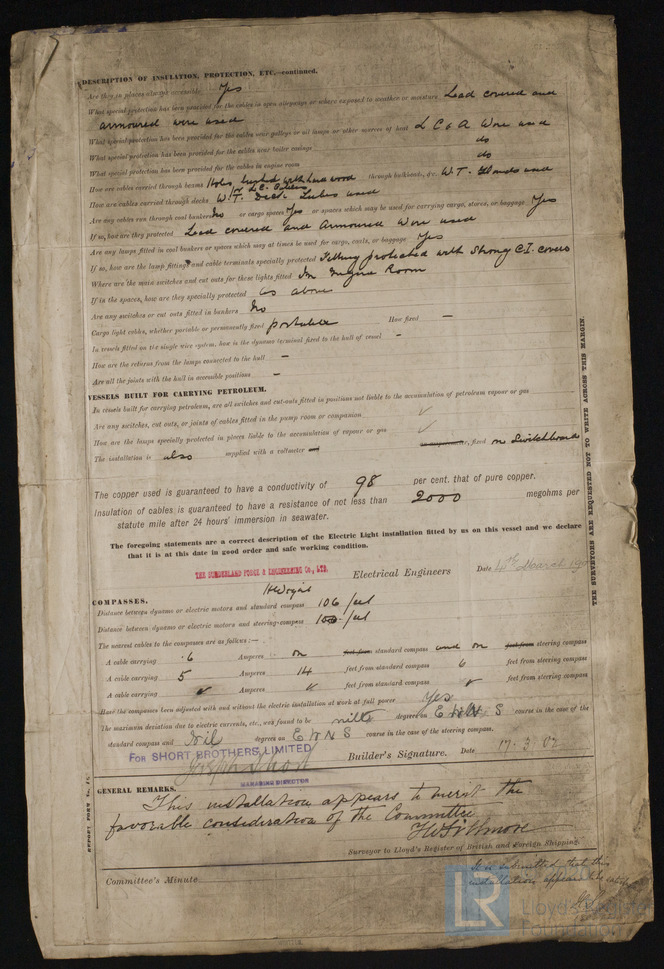 DESCRIPTION OF INSULATION, PROTECTION, ETC.—continued.
Are they in places always accessible Yes
What special protection has been provided for the cables in open alleyways or where exposed to weather or moisture Lead covered and
armoured were used
What special protection has been provided for the cables near galleys or oil lamps or other sources of heat L C & A Were used
What special protection has been provided for the cables near boiler casings do
What special protection has been provided for the cables in engine room do
How are cables carried through beams Holes bushed with hard wood through bulkheads, &c. W. T. Glands used
How are cables carried through decks W. T. Deck Tubes used
Are any cables run through coal bunkers No or cargo spaces Yes or spaces which may be used for carrying cargo, stores, or baggage Yes
If so, how are they protected Lead covered and Armoured Were used
Are any lamps fitted in coal bunkers or spaces which may at times be used for cargo, coals, or baggage Yes
If so, how are the lamp fittings and cable terminals specially protected Fittings protected with Strong C.I. covers
Where are the main switches and cut outs for these lights fitted In Engine Room
If in the spaces, how are they specially protected as above
Are any switches or cut outs fitted in bunkers No
Cargo light cables, whether portable or permanently fixed portable How fixed —
In vessels fitted on the single wire system, how is the dynamo terminal fixed to the hull of vessel —
How are the returns from the lamps connected to the hull —
Are all the joints with the hull in accessible positions —
VESSELS BUILT FOR CARRYING PETROLEUM.
In vessels built for carrying petroleum, are all switches and cut-outs fitted in positions not liable to the accumulation of petroleum vapour or gas
Are any switches, cut outs, or joints of cables fitted in the pump room or companion ✓
How are the lamps specially protected in places liable to the accumulation of vapour or gas ✓
The installation is also supplied with a voltmeter , fixed on Switchboard
The copper used is guaranteed to have a conductivity of 98 per cent. that of pure copper.
Insulation of cables is guaranteed to have a resistance of not less than 2000 megohms per
statute mile after 24 hours' immersion in seawater.
The foregoing statements are a correct description of the Electric Light installation fitted by us on this vessel and we declare
that it is at this date in good order and safe working condition.
THE SUNDERLAND FORGE & ENGINEERING CO., LTD. Electrical Engineers Date 4th March 190
COMPASSES.
Distance between dynamo or electric motors and standard compass 106 feet
Distance between dynamo or electric motors and steering-compass 100 feet
The nearest cables to the compasses are as follows:—
A cable carrying .6 Amperes on feet from standard compass and on feet from steering compass
A cable carrying 5 Amperes 14 feet from standard compass 6 feet from steering compass
A cable carrying ✓ Amperes ✓ feet from standard compass ✓ feet from steering compass
Have the compasses been adjusted with and without the electric installation at work at full power Yes
The maximum deviation due to electric currents, etc., was found to be degrees on E W N S course in the case of the
standard compass and Nil degrees on E W N S course in the case of the steering compass.
FOR SHORT BROTHERS LIMITED
Joseph Short Builder's Signature. Date 17.3.07
MANAGING DIRECTOR
GENERAL REMARKS.
This installation appears to merit the
favorable consideration of the Committee
Surveyor to Lloyd's Register of British and Foreign Shipping.
It is submitted that this
installation appears to be
Committee's Minute
THE SURVEYORS ARE REQUESTED NOT TO WRITE ACROSS THIS MARGIN.
LR
Lloyd's Register
Foundation